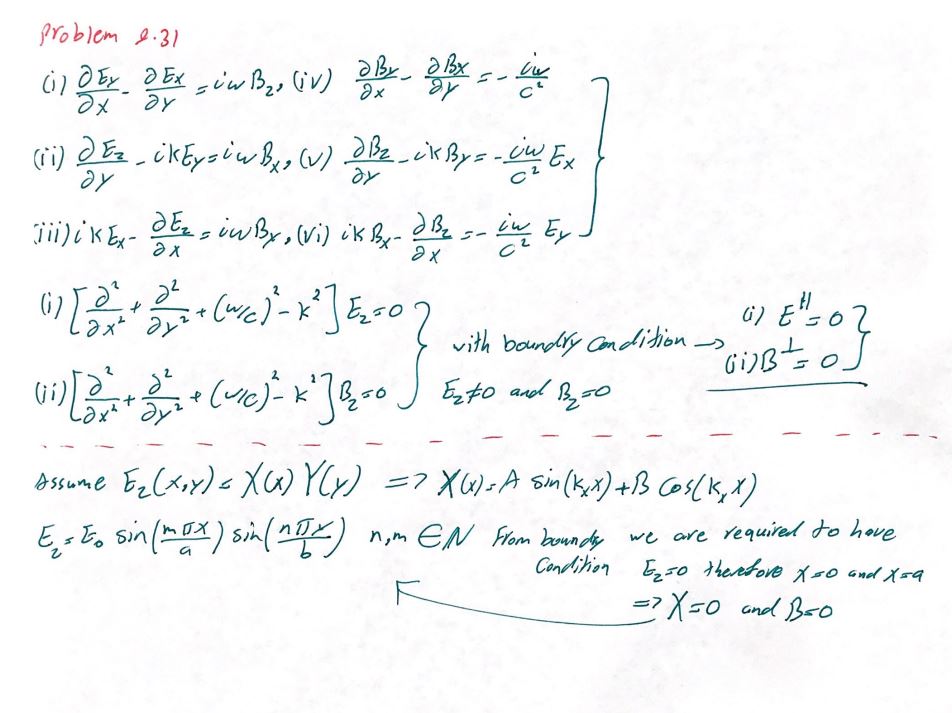 Problem 9.31
(i) ∂Ey/∂x - ∂Ex/∂y = iωBz, (iv) ∂By/∂x - ∂Bx/∂y = - iω/c²
(ii) ∂Ez/∂y - ikEy = iωBx, (v) ∂Bz/∂y - ikBy = - iω/c² Ex
(iii) ikEx - ∂Ez/∂x = iωBy, (vi) ikBx - ∂Bz/∂x = - iω/c² Ey
(i) [∂²/∂x² + ∂²/∂y² + (ω/c)² - k²] Ez = 0
with boundry condition → (i) E^∥ = 0
(ii) B^⊥ = 0
(ii) [∂²/∂x² + ∂²/∂y² + (ω/c)² - k²] Bz = 0
Ez ≠ 0 and Bz = 0
Assume Ez(x,y) = X(x) Y(y) => X(x) = A sin(kx x) + B cos(kx x)
Ez = E₀ sin(mπx/a) sin(nπy/b) n,m ∈ N From boundy Condition we are required to have
Ez = 0 therefore x=0 and x=a
=> X=0 and B=0